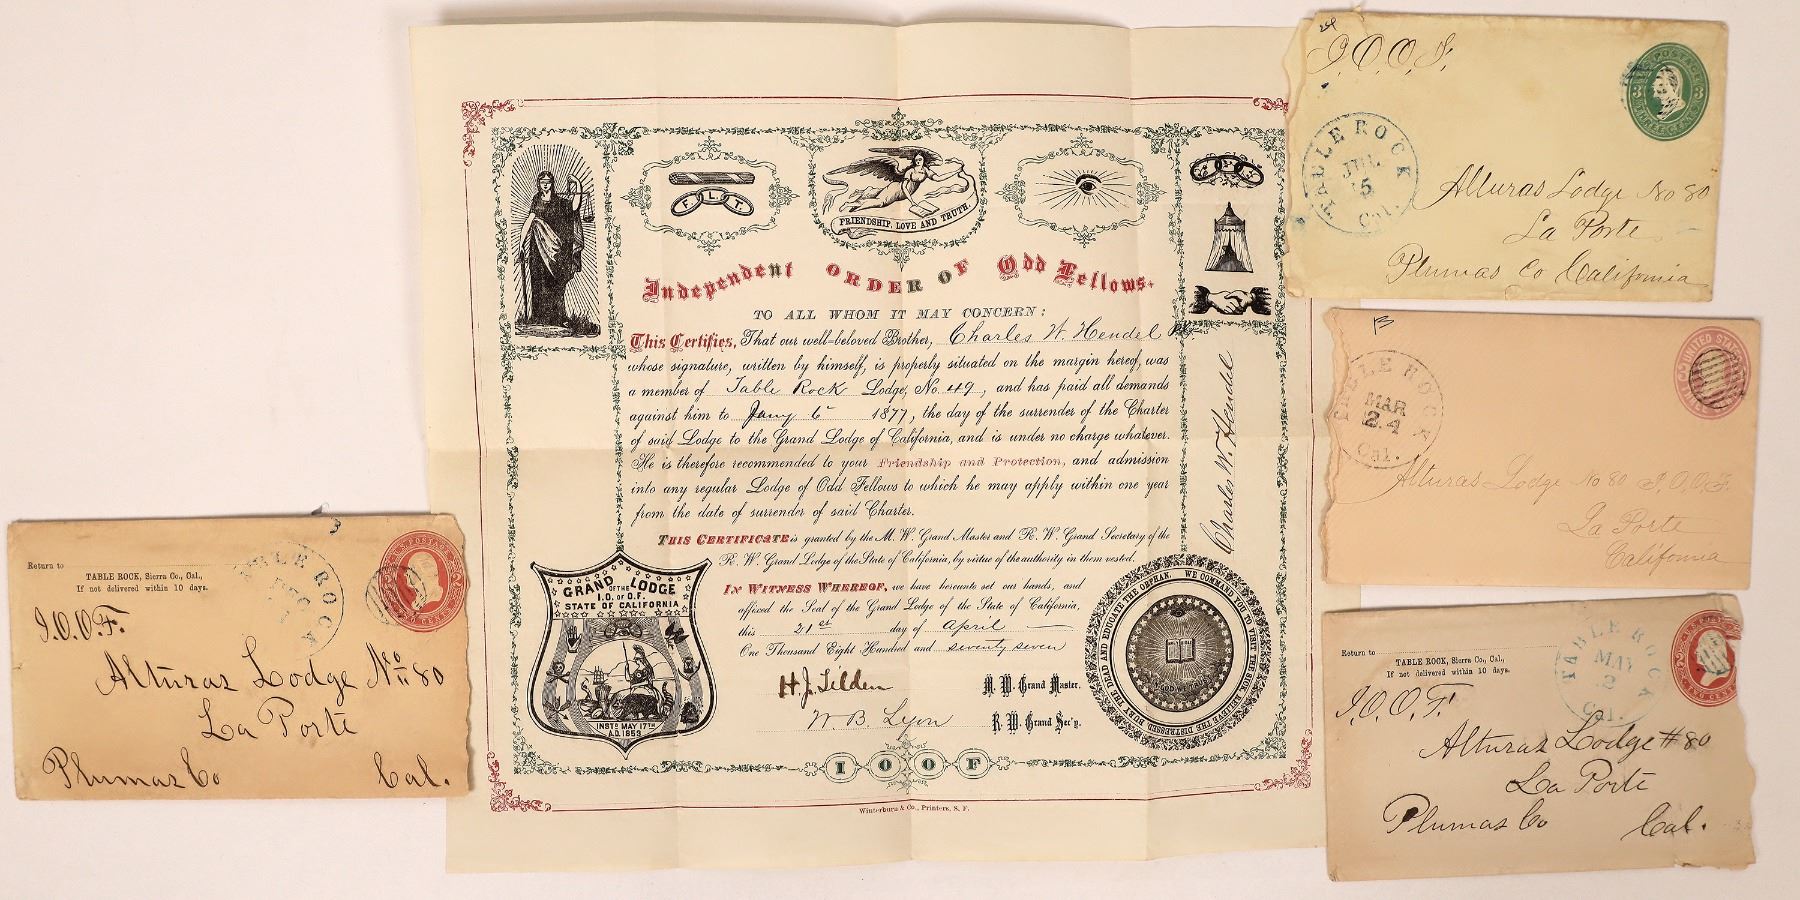 F. L. T.
FRIENDSHIP, LOVE AND TRUTH.
Independent ORDER OF Odd Fellows.
TO ALL WHOM IT MAY CONCERN:
This Certifies, That our well-beloved Brother, Charles W. Hendel
whose signature, written by himself, is properly situated on the margin hereof, was
a member of Table Rock Lodge, No. 49, and has paid all demands
against him to Jany 6 1877, the day of the surrender of the Charter
of said Lodge to the Grand Lodge of California, and is under no charge whatever.
He is therefore recommended to your Friendship and Protection, and admission
into any regular Lodge of Odd Fellows to which he may apply within one year
from the date of surrender of said Charter.
THIS CERTIFICATE is granted by the M. W. Grand Master and R. W. Grand Secretary of the
R. W. Grand Lodge of the State of California, by virtue of the authority in them vested.
IN WITNESS WHEREOF, we have hereunto set our hands, and
affixed the Seal of the Grand Lodge of the State of California,
this 21st day of April
One Thousand Eight Hundred and seventy seven
H. J. Tilden M. W. Grand Master.
W. B. Lyon R. W. Grand Sec'y.
Charles W. Hendel
GRAND LODGE
OF THE
I.O. OF O.F.
STATE OF CALIFORNIA
INSTD MAY 17TH
A.D. 1853
WE COMMAND YOU TO VISIT THE SICK, RELIEVE THE DISTRESSED, BURY THE DEAD AND EDUCATE THE ORPHAN.
I O O F
Winterburn & Co., Printers, S. F.
I.O.O.F.
TABLE ROCK
JUL
5
Cal.
U.S. POSTAGE
3 3
THREE CENTS
Alturas Lodge No 80
La Porte
Plumas Co California
TABLE ROCK
MAR
24
Cal.
UNITED STATES
Alturas Lodge No 80 I.O.O.F.
La Porte
California
Return to
TABLE ROCK, Sierra Co., Cal.,
If not delivered within 10 days.
TABLE ROCK
MAY
2
Cal.
TWO CENTS
I.O.O.F.
Alturas Lodge # 80
La Porte
Plumas Co Cal.
Return to
TABLE ROCK, Sierra Co., Cal.,
If not delivered within 10 days.
TABLE ROCK
U.S. POSTAGE
TWO CENTS
I.O.O.F.
Alturas Lodge No 80
La Porte
Plumas Co Cal.